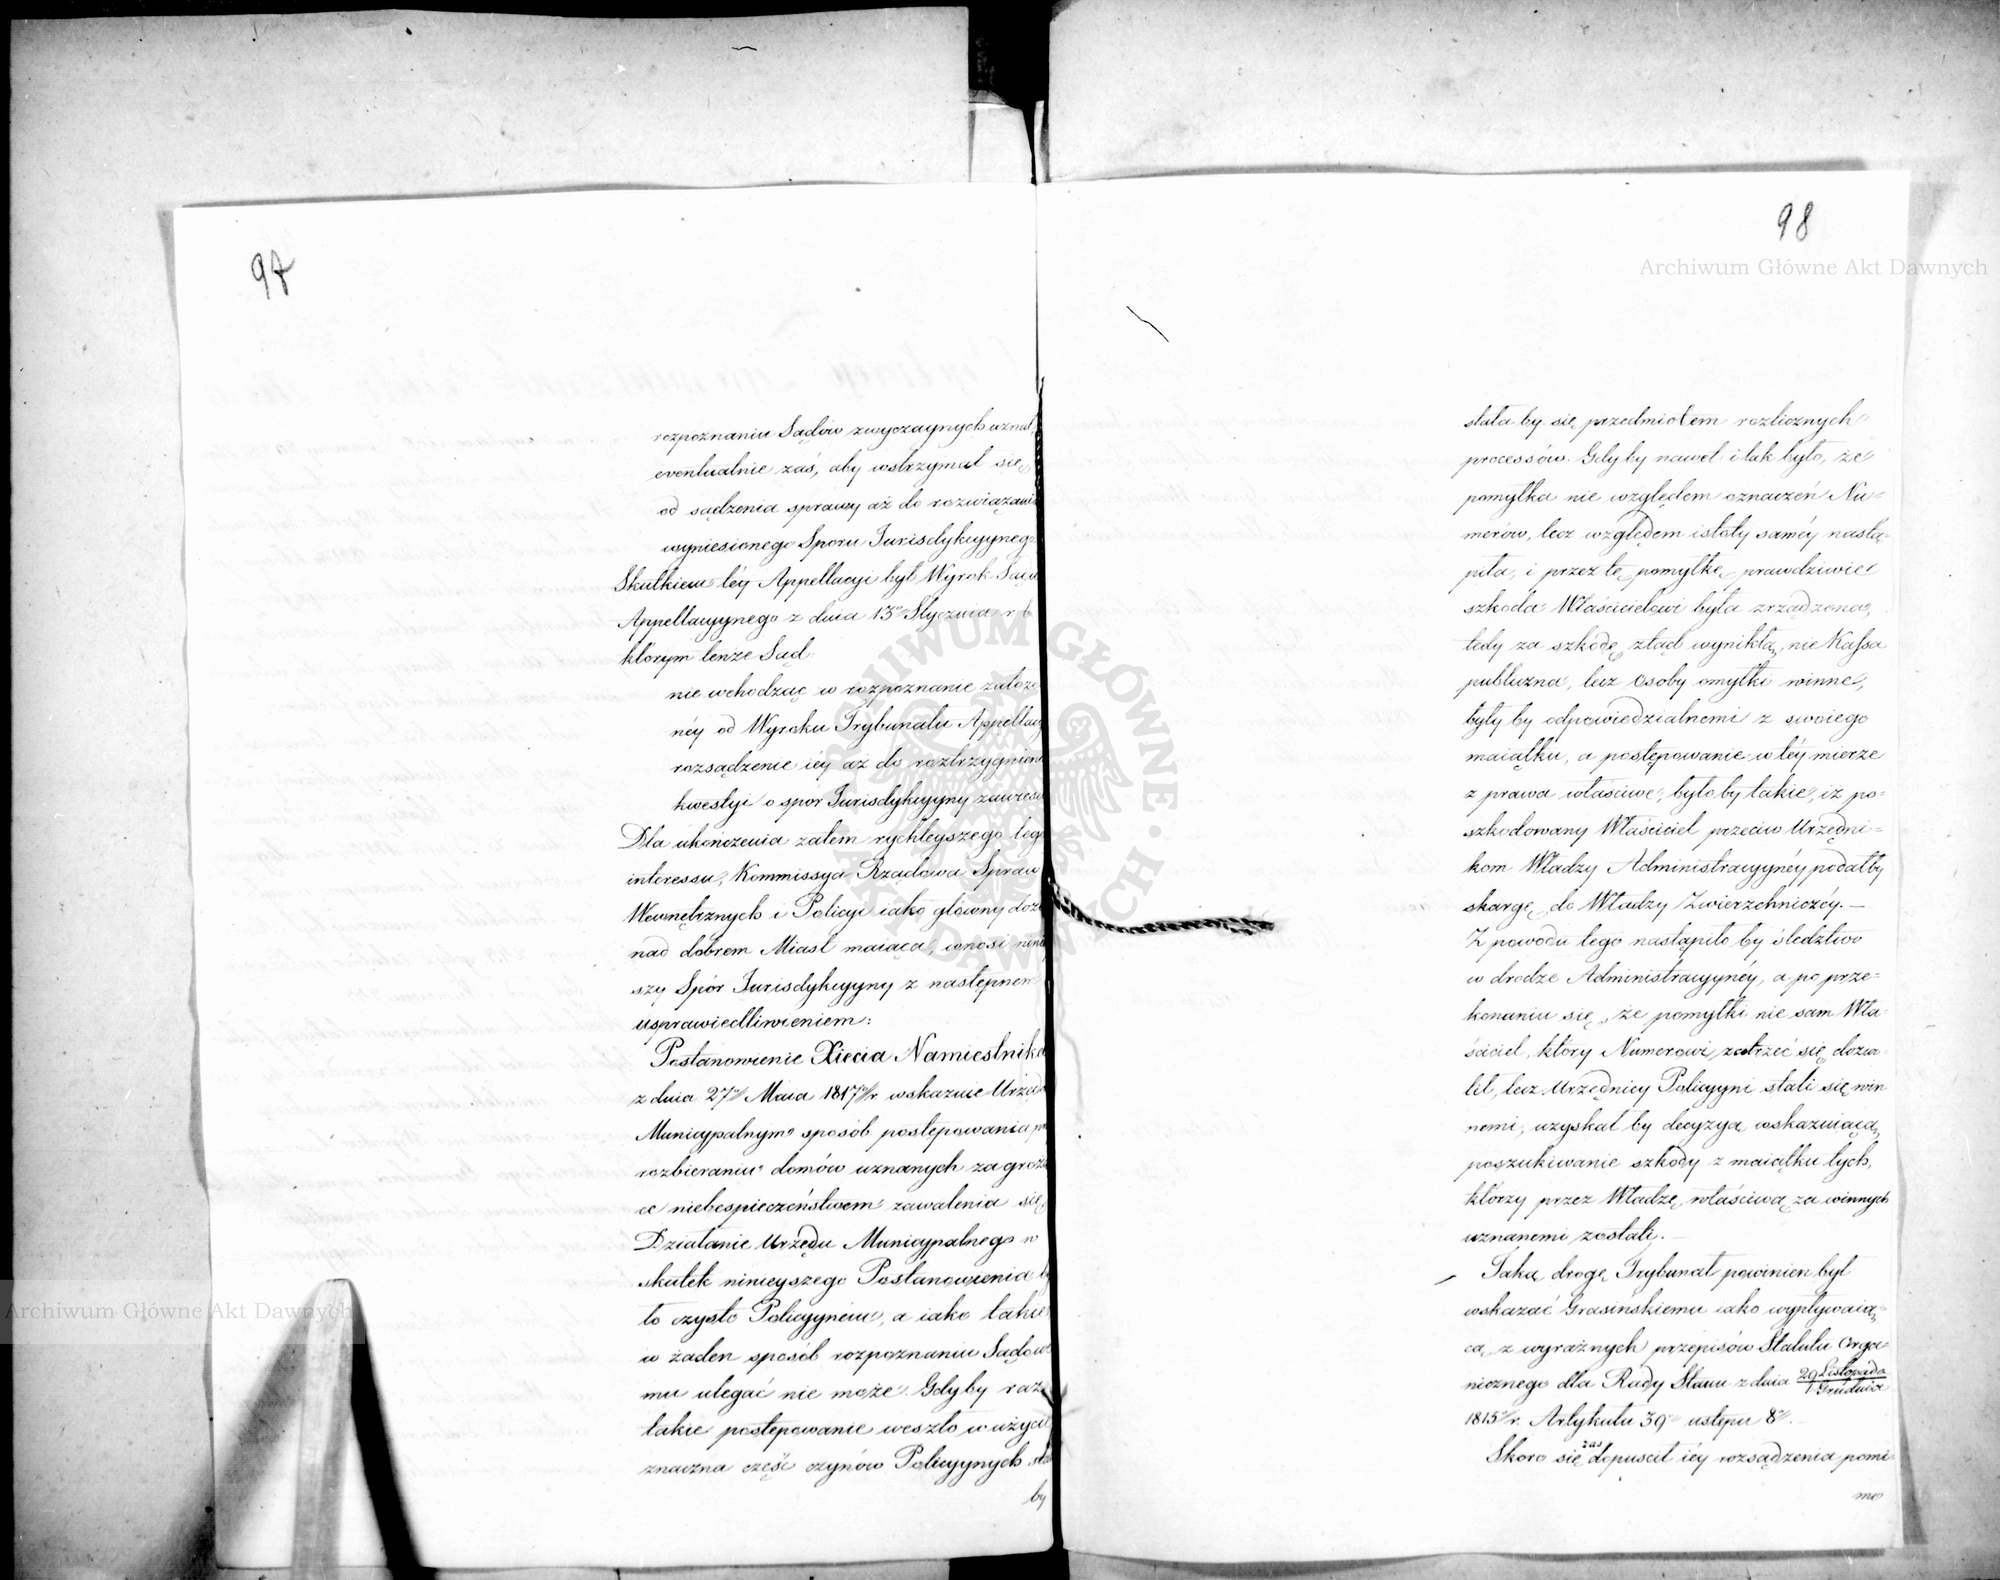 97
rozpoznaniu Sądów zwyczaynych uznał,
eventualnie zaś, aby wstrzymał się
od sądzenia sprawy aż do rozwiązania
wyniesionego Sporu Jurisdykcyynego.
Skutkiem téy Appellacyi był Wyrok Sądu
Appellacyynego z dnia 13º Stycznia r b
którym tenże Sąd.
nie wchodząc w rozpoznanie założo
néy od Wyroku Trybunału Appellacyi
rozsądzenie iéy aż do roztrzygnieni
kwestyi o spór Jurisdykcyyny zawiesił
Dla ukończenia zatem rychleyszego tego
interessu, Kommissya Rządowa Spraw
Wewnętrznych i Policyi iako główny dozór
nad dobrem Miast maiąca, wnosi niniey
szy Spór Jurisdykcyyny z następnem
usprawiedliwieniem:
Postanowienie Xięcia Namiestnika
z dnia 27º Maia 1817º r. wskazuie Urzędo
Municypalnym sposób postępowania p
rozbieraniu domów uznanych za grożą
ce niebespieczeństwem zawalenia się
Działanie Urzędu Municypalnego w
skutek ninieyszego Postanowienia
to czysto Policyynem, a iako takie
w żaden sposób rozpoznaniu Sądowe
mu ulegać nie może. Gdyby raz
takie postępowanie weszło w użycie
znaczna część czynów Policyynych sta
by
98
stała by się przedmiotem rozlicznych
processów. Gdyby nawet i tak było, że
pomyłka nie względem oznaczeń Nu=
merów, lecz względem istoty saméy nastą=
piła, i przez tę pomyłkę prawdziwie
szkoda Właścicielowi była zrządzona,
tedy za szkodę ztąd wynikłą, nie Kassa
publiczna, lecz Osoby omyłki winne,
były by odpowiedzialnemi z swoiego
maiątku, a postępowanie w téy mierze
z prawa właściwe, było by takie, iż po=
szkodowany Właściciel przeciw Urzędni=
kom Władzy Administracyynéy podałby
skargę do Władzy Zwierzchniczéy. —
Z powodu tego nastąpiło by śledztwo
w drodze Administracyynéy, a po prze=
konaniu się, że pomyłki nie sam Wła=
ściciel, który Numerowi zatrzeć się dozwo
lił, lecz Urzędnicy Policyyni stali się win
nemi, uzyskał by decyzyą wskazuiącą
poszukiwanie szkody z maiątku tych,
którzy przez Władzę właściwą za winnych
uznanemi zostali. —
Taką drogę Trybunał powinien był
wskazać Grasinskiemu iako wypływaią=
cą z wyraźnych przepisów Statutu Orga=
nicznego dla Rady Stanu z dnia 29 Listopada / 1 Grudnia
1815º r. Artykułu 39º ustępu 8º.
Skoro się zas dopuscił iéy rozsądzenia pomi=
mo
Archiwum Główne Akt Dawnych
Archiwum Główne Akt Dawnych
ARCHIWUM GŁÓWNE AKT DAWNYCH